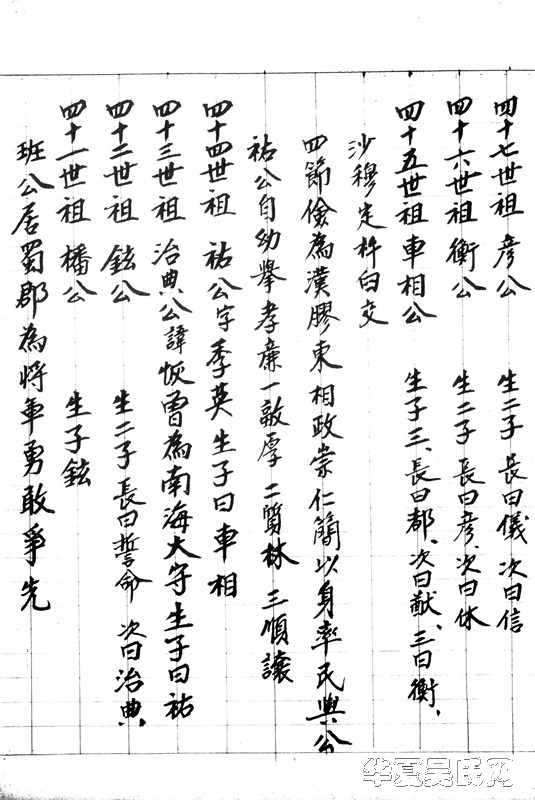 班公居蜀郡為將軍勇敢爭先
四十一世祖 橎公 生子鉉
四十二世祖 鉉公 生二子長曰誓命 次曰治典、
四十三世祖 治典公諱恢曾為南海大守生子曰祐
四十四世祖 祐公字季英生子曰車相
祐公自幼舉孝廉一敦厚二質樸三順讓
四節儉為漢膠東相政崇仁簡以身率民與公
沙穆定杵臼交
四十五世祖車相公 生子三、長曰都、次曰猷、三曰衡、
四十六世祖衡公 生二子長曰彥、次曰休
四十七世祖彥公 生二子長曰儀次曰信
华夏吴氏网